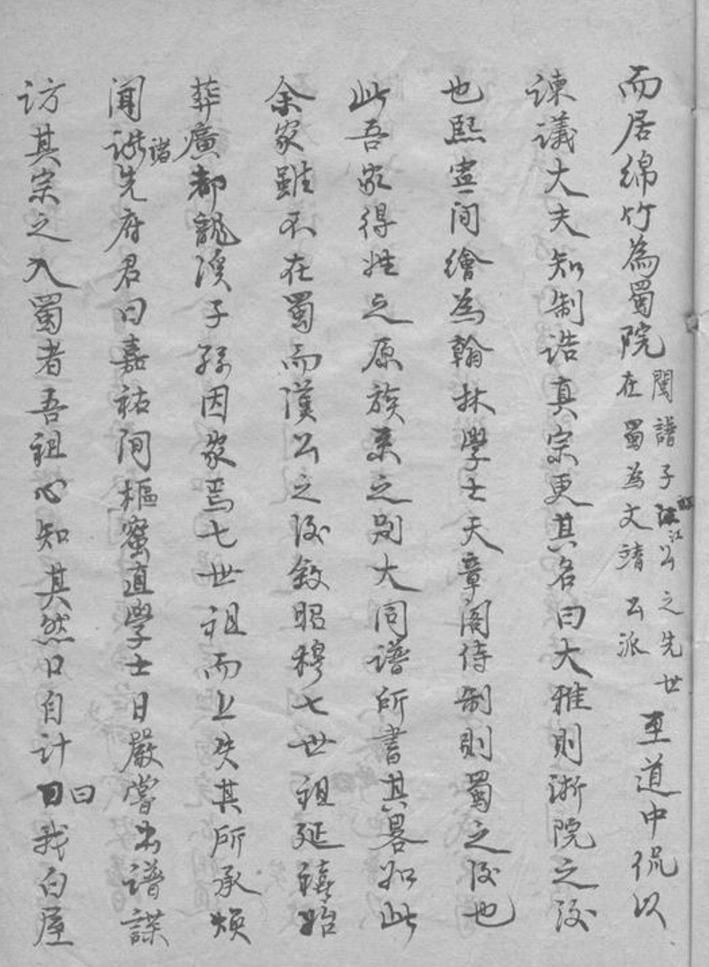 而居綿竹為蜀院閩譜子江公之先世在蜀為文靖公派至道中侃以
諫議大夫知制誥真宗更其名曰大雅則浙院之后
也熙寍间繪為翰林學士天章阁待制則蜀之后也
此吾家得姓之原族系之别大同譜所書其畧如此
余家雖不在蜀而漢公之后敘昭穆七世祖延禧始
葬廣都龍溪子孫因家焉七世祖而上失其所承煥
闻諸先府君曰嘉祐间樞蜜直學士日嚴嘗出譜諜
访其宗之入蜀者吾祖心知其然口自计曰我白屋